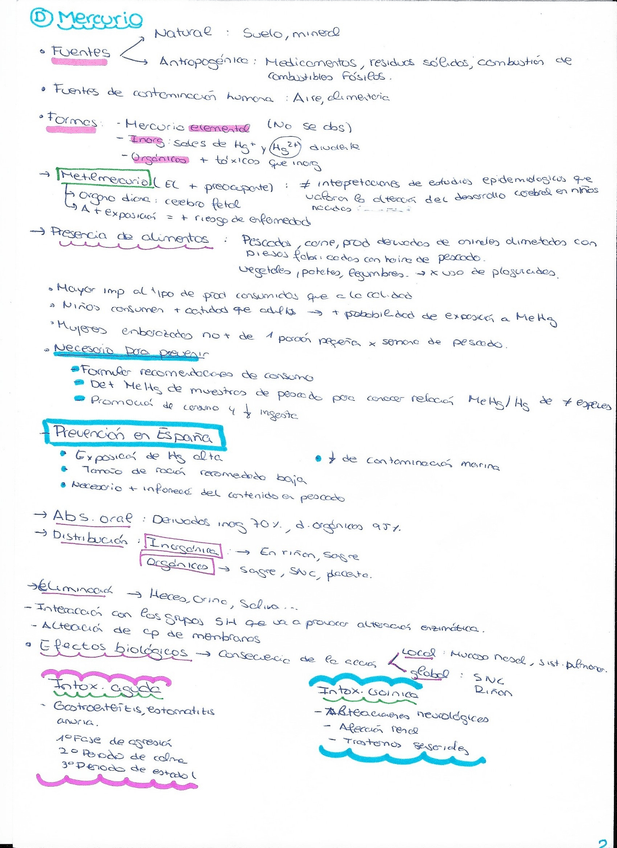 D Mercurio
Natural : Suelo, mineral
• Fuentes
Antropogénico : Medicamentos, residuos sólidos, combustión de
combustibles fósiles.
• Fuentes de contaminación humana : Aire, alimentaria
• Formas: - Mercurio elemental (No se abs)
- Inorg: sales de Hg⁺ y Hg²⁺ divalente
- Orgánicos + tóxicos que inorg
→ Metilmercurio (EL + preocupante) : ≠ interpretaciones de estudios epidemiológicos que
↳ órgano diana : cerebro fetal
valoran la alteración del desarrollo cerebral en niños
↳ A + exposición = + riesgo de enfermedad
nacidos :
→ Presencia de alimentos : Pescados, carne, prod derivados de animales alimentados con
piensos fabricados con harina de pescado.
Vegetales, patatas, legumbres. → x uso de plaguicidas.
• Mayor imp al tipo de prod consumidos que a la calidad
• Niños consumen + cantidad que adultos → + probabilidad de exposición a MeHg
• Mujeres embarazadas no + de 1 porción pequeña x semana de pescado.
• Necesario para prevenir
• Formular recomendaciones de consumo
• Det MeHg de muestras de pescado para conocer relación MeHg/Hg de ≠ especies
• Promoción de consumo y ↓ ingesta
- Prevención en España
• Exposición de Hg alta
• ↓ de contaminación marina
• Tamaño de ración recomendado baja
• Necesario + información del contenido en pescado
→ Abs. oral : Derivados inorg 70%, d. orgánicos 95%
→ Distribución : Inorgánica : → En riñon, sagre
Orgánicos → sagre, SNC, placenta.
→ eliminación → Heces, orina, saliva...
- Interacción con los grupos SH que va a provocar alteración enzimática.
- Alteación de cp de membranas
• Efectos biológicos → consecuencia de la acción
Local : Mucosa nasal, sist. pulmonar.
global : SNC
Riñon
Intox. aguda
Intox. crónica
- Gastroenteritis, estomatitis
anuria.
- Alteraciones neurológicos
- Afección renal
- Trastornos sensoriales
1º Fase de agresión
2º Periodo de calma
3º Periodo de estado
2